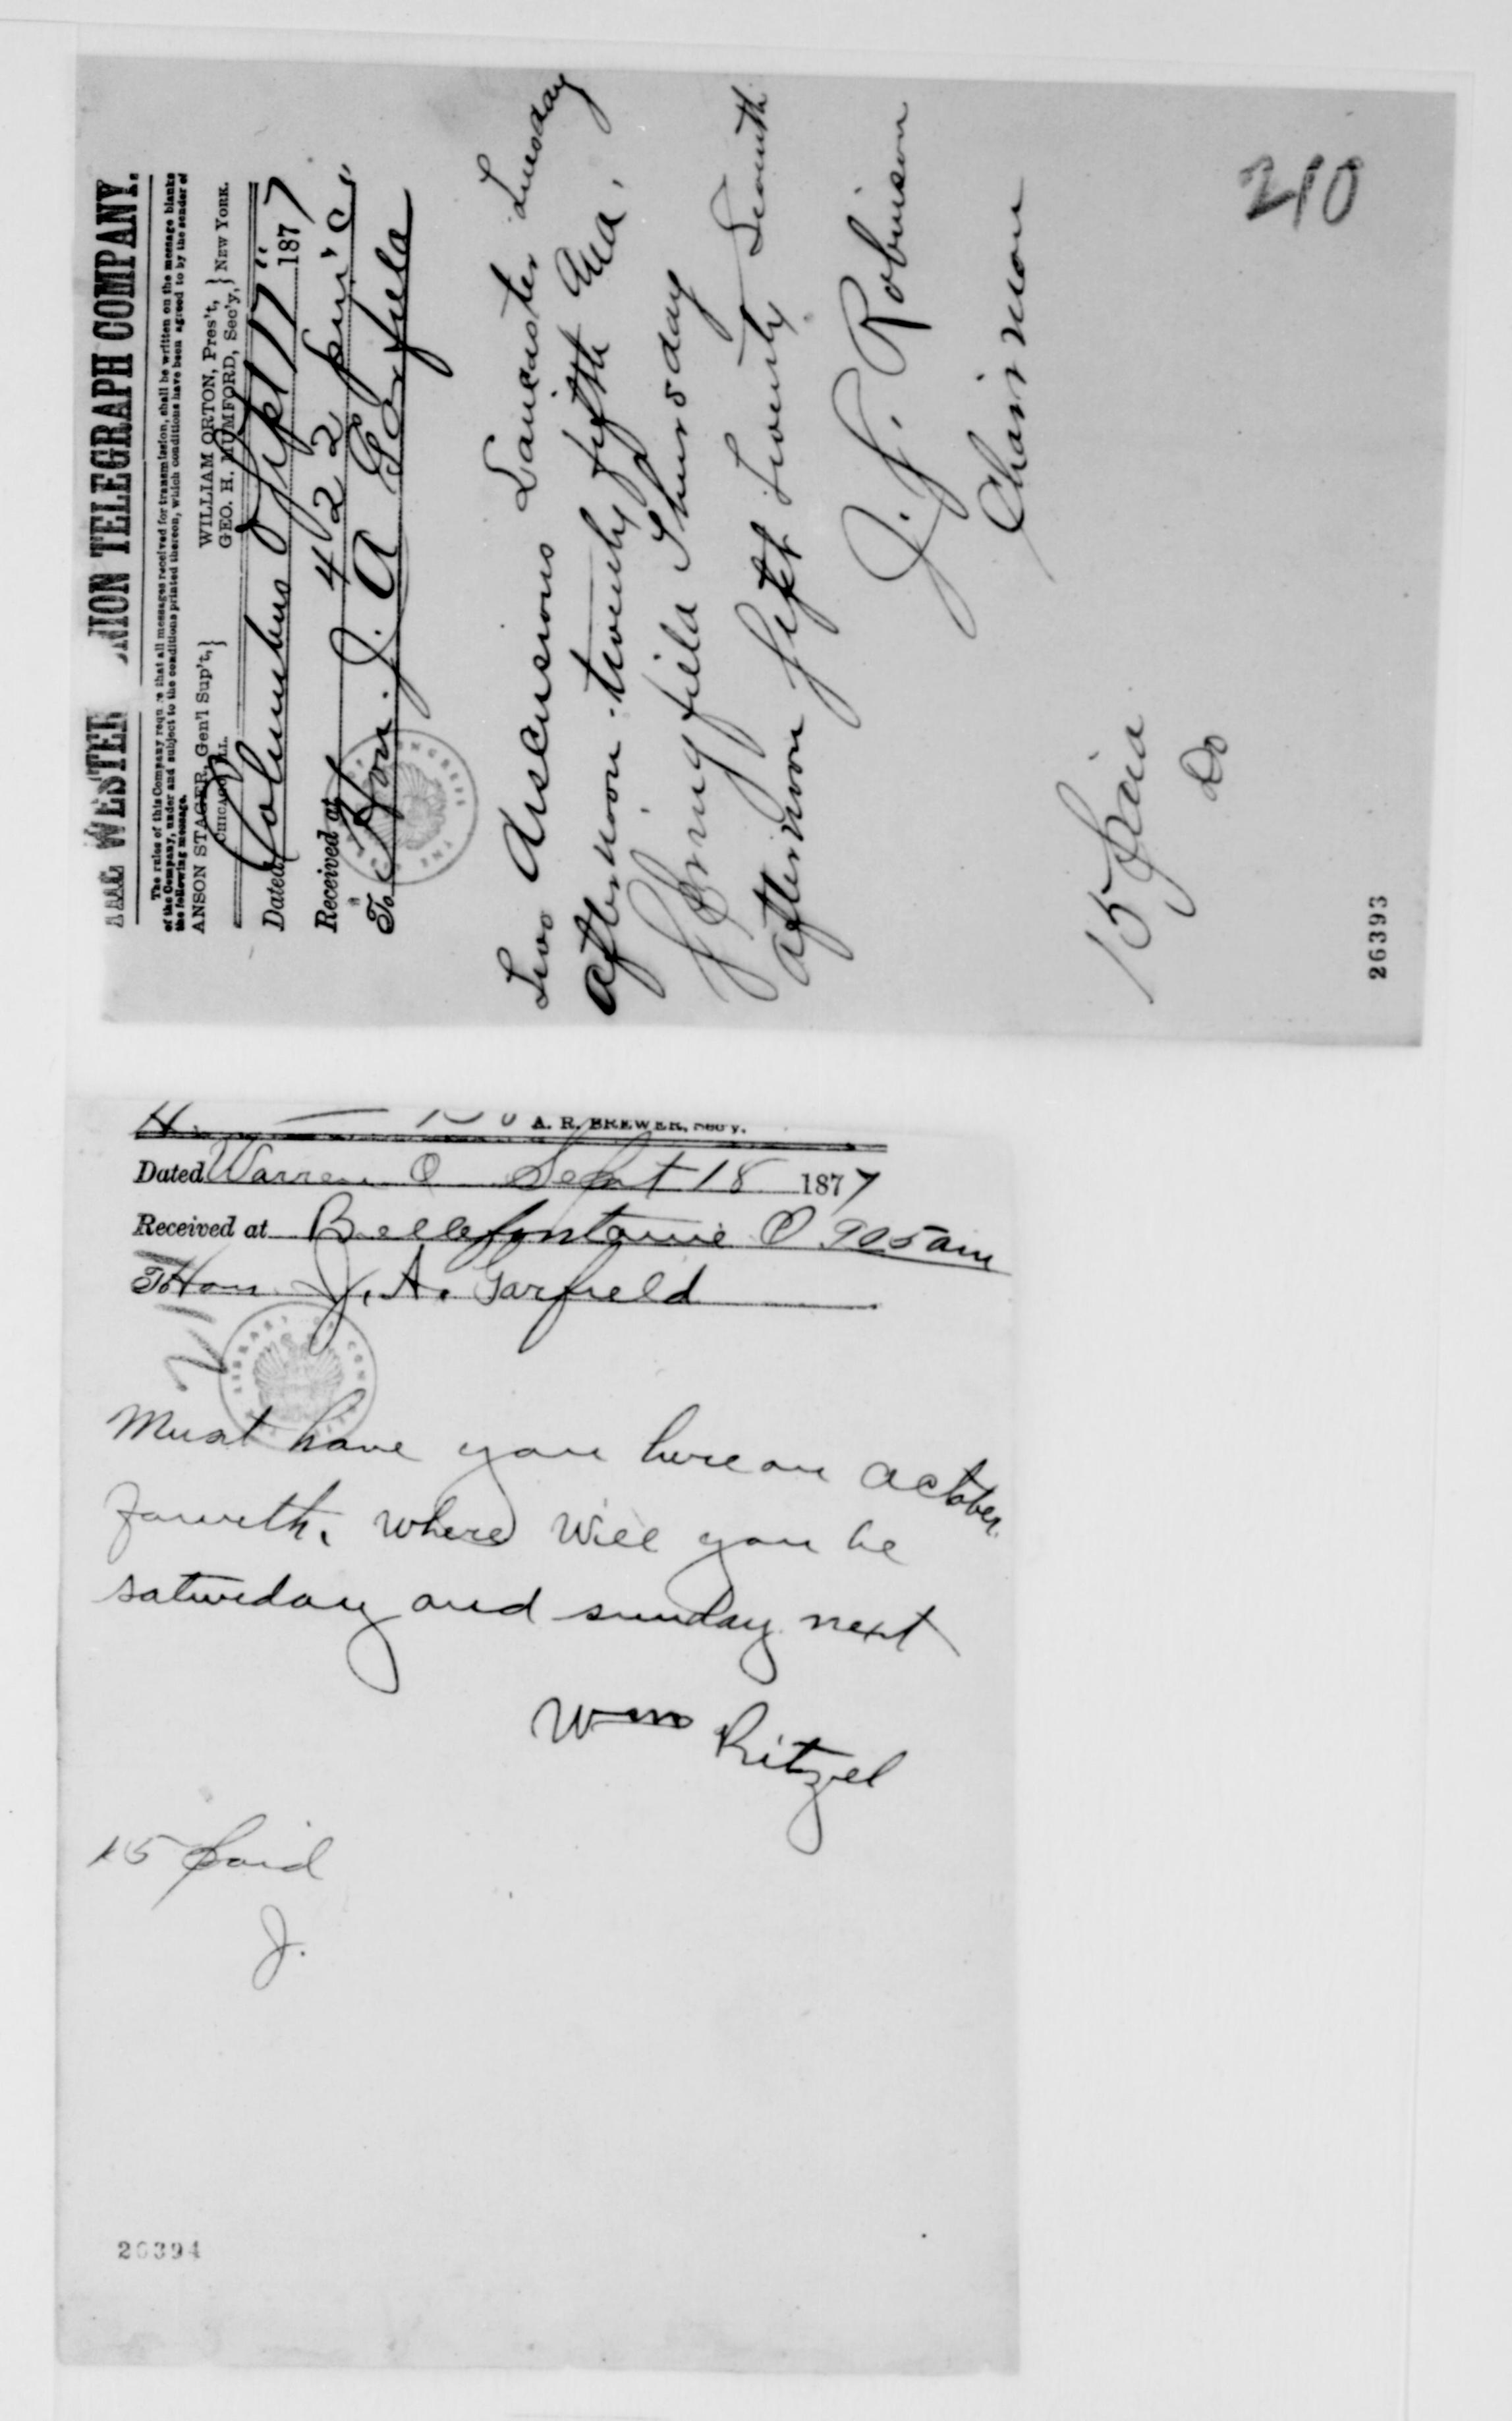 THE WESTERN UNION TELEGRAPH COMPANY.
The rules of this Company require that all messages received for transmission, shall be written on the message blanks
of the Company, under and subject to the conditions printed thereon, which conditions have been agreed to by the sender of
the following message.
ANSON STAGER, Gen'l Sup't, } WILLIAM ORTON, Pres't, } NEW YORK.
CHICAGO, ILL. GEO. H. MUMFORD, Sec'y,
Dated Columbus O Sept 17" 1877
Received at 422 pm
To Hon. J. A Garfield
Two discusions Lancaster Tuesday
afternoon twenty fifth and
Springfield Thursday
afternoon Sept twenty seventh
J. S. Robinson
Chairman
15 Paid
210
26393
A. R. BREWER, Sec'y.
Dated Warren O Sept 18 1877
Received at Bellefontaine O 905 am
To Hon J. A. Garfield
LIBRARY OF CONGRESS
Must have you here on October
fourth. Where will you be
saturday and sunday next
Wm Ritzel
15 Paid
J.
26394